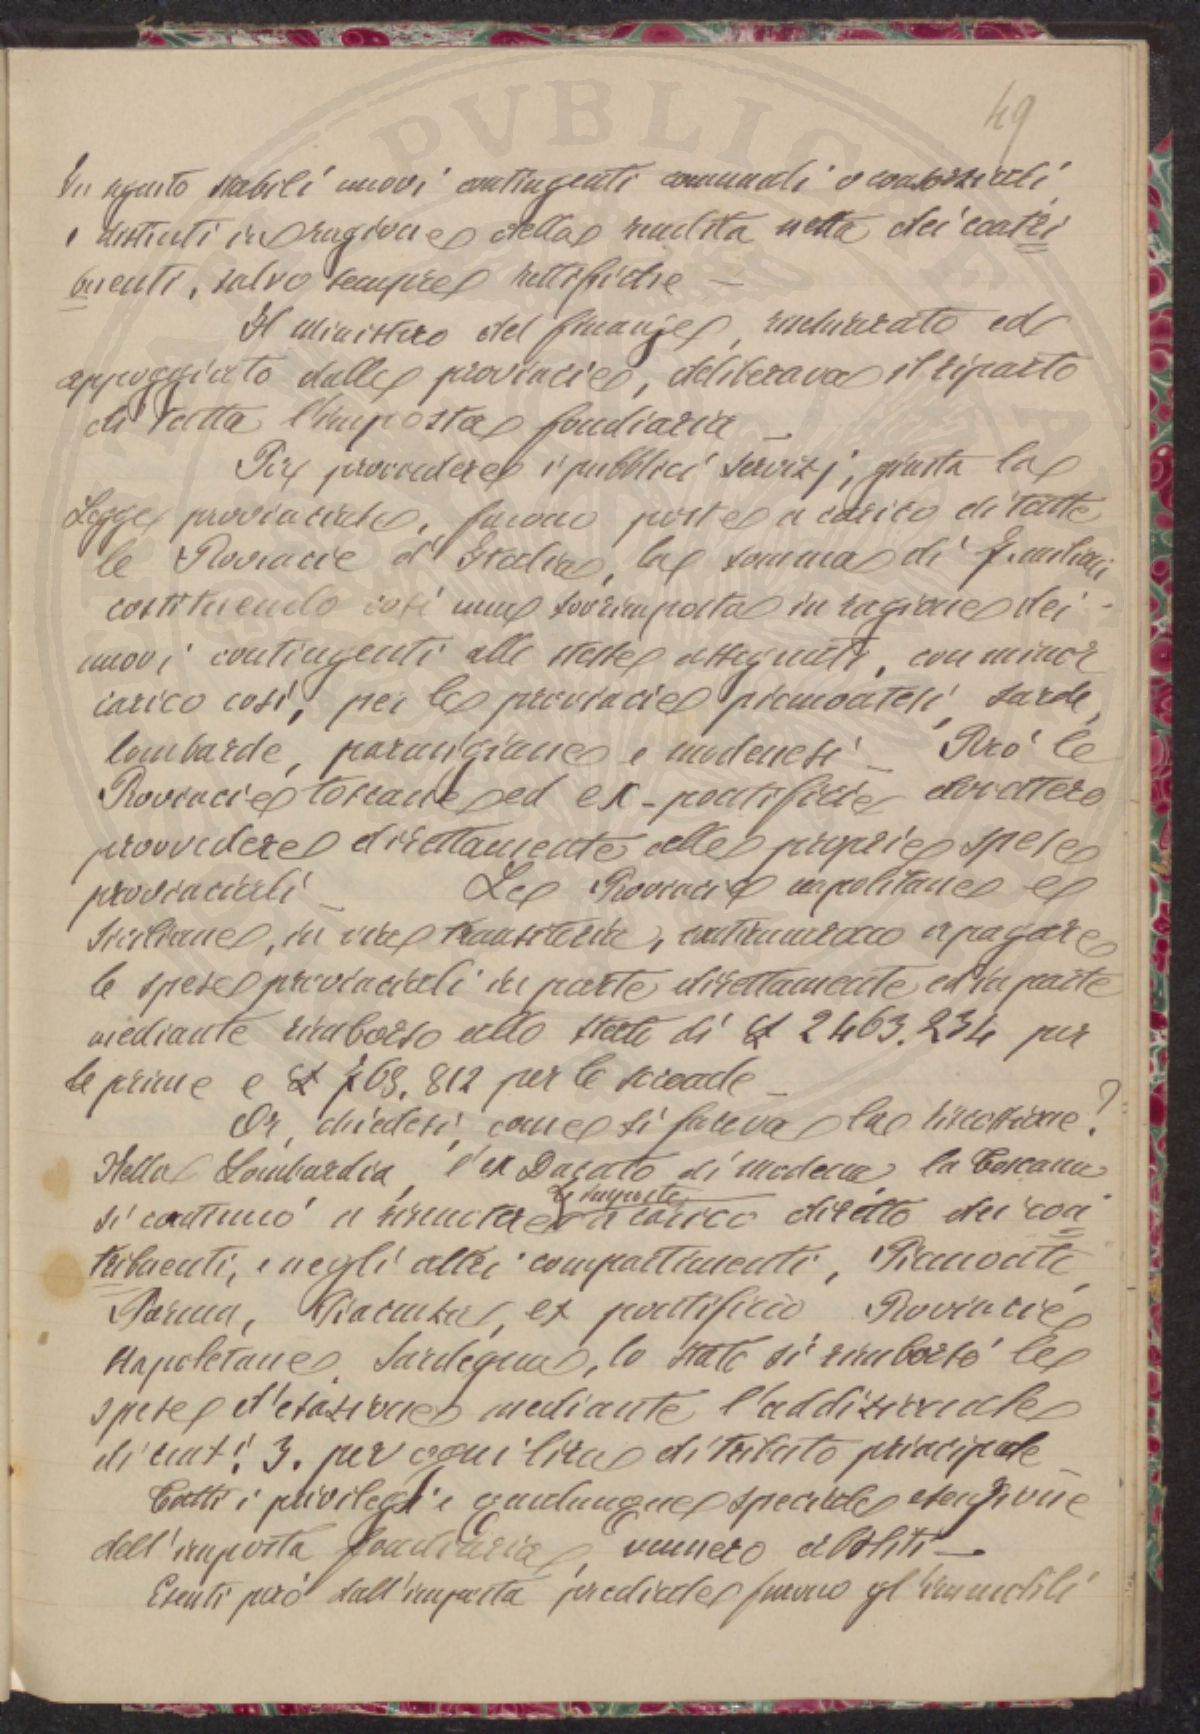 49
In agosto stabilì nuovi contingenti comunali o consorziali
e distinti in ragione della rendita netta dei contri
buenti, salvo sempre rettifiche –
Il ministero del finanze, rischiarato ed
appoggiato dalle provincie, deliberava il riparto
di tutta l'imposta fondiaria –
Per provvedere i pubblici servizj, giusta la
Legge provinciale, furono poste a carico di tutte
le Provincie d'Italia, la somma di 7. milioni
costituendo così una sovrimposta in ragione dei
nuovi contingenti alle stesse assegnati, con minor
carico così, per le provincie piemontesi, sarde,
lombarde, parmigiane e modenesi – Però le
Provincie toscane ed ex-pontificie dovettero
provvedere direttamente alle proprie spese
provinciali – Le Provincie napolitane e
siciliane, in via transitoria, continuarono a pagare
le spese provinciali in parte direttamente ed in parte
mediante rimborso allo stato di £ 2463.234 per
le prime e £ 768.812 per le seconde –
Or, chiedesi, come si faceva la riscossione?
Nella Lombardia, l'ex Ducato di modena, la Toscana
le imposte
si continuò a riscuotere a carico diretto dei con
tribuenti, e negli altri compartimenti, Piemonte,
Parma, Piacenza, ex pontificio Provincie
Napoletane, Sardegna, lo stato si rimborsò le
spese d'esazione mediante l'addizionale
di cent! 3. per ogni lira di tributo principale –
Tutti i privilegi e qualunque speciale esenzione
dell'imposta fondiaria, vennero aboliti –
Esenti però dall'imposta prediale furono gl'immobili